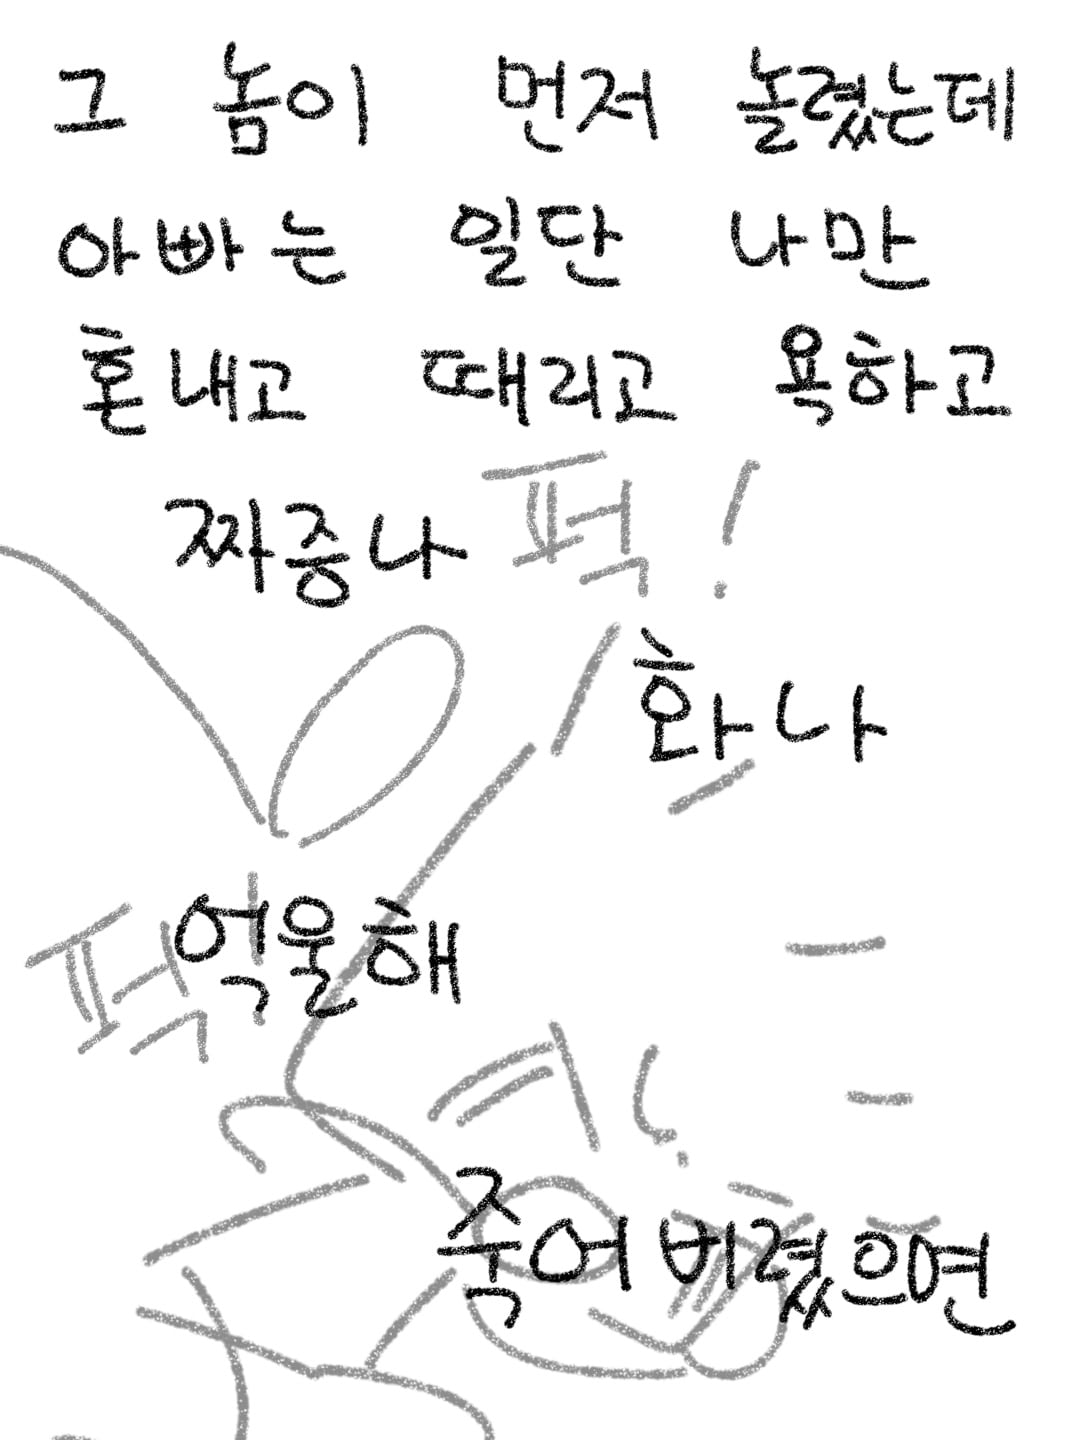 그 놈이 먼저 놀렸는데
아빠는 일단 나만
혼내고 때리고 욕하고
짜증나 퍽!
화나
퍽 억울해
죽어버렸으면